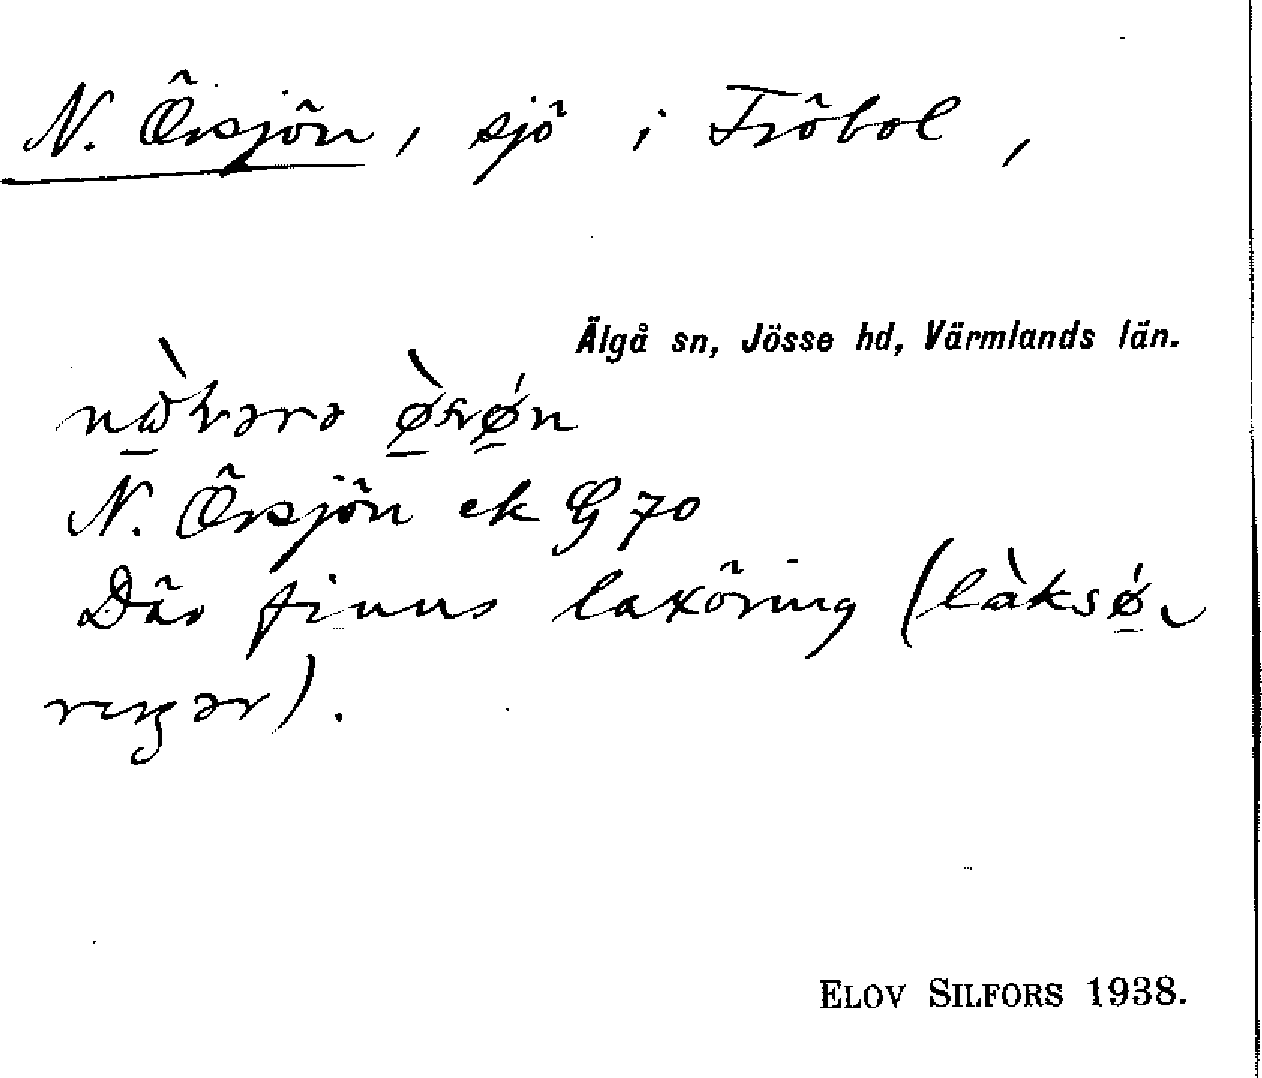 N. Örsjön, sjö i Fröbol,
Älgå sn, Jösse hd, Värmlands län.
N. Örsjön ek G 70
Där finns laxöring (làksǿ-
reŋər).
ELOV SILFORS 1938.